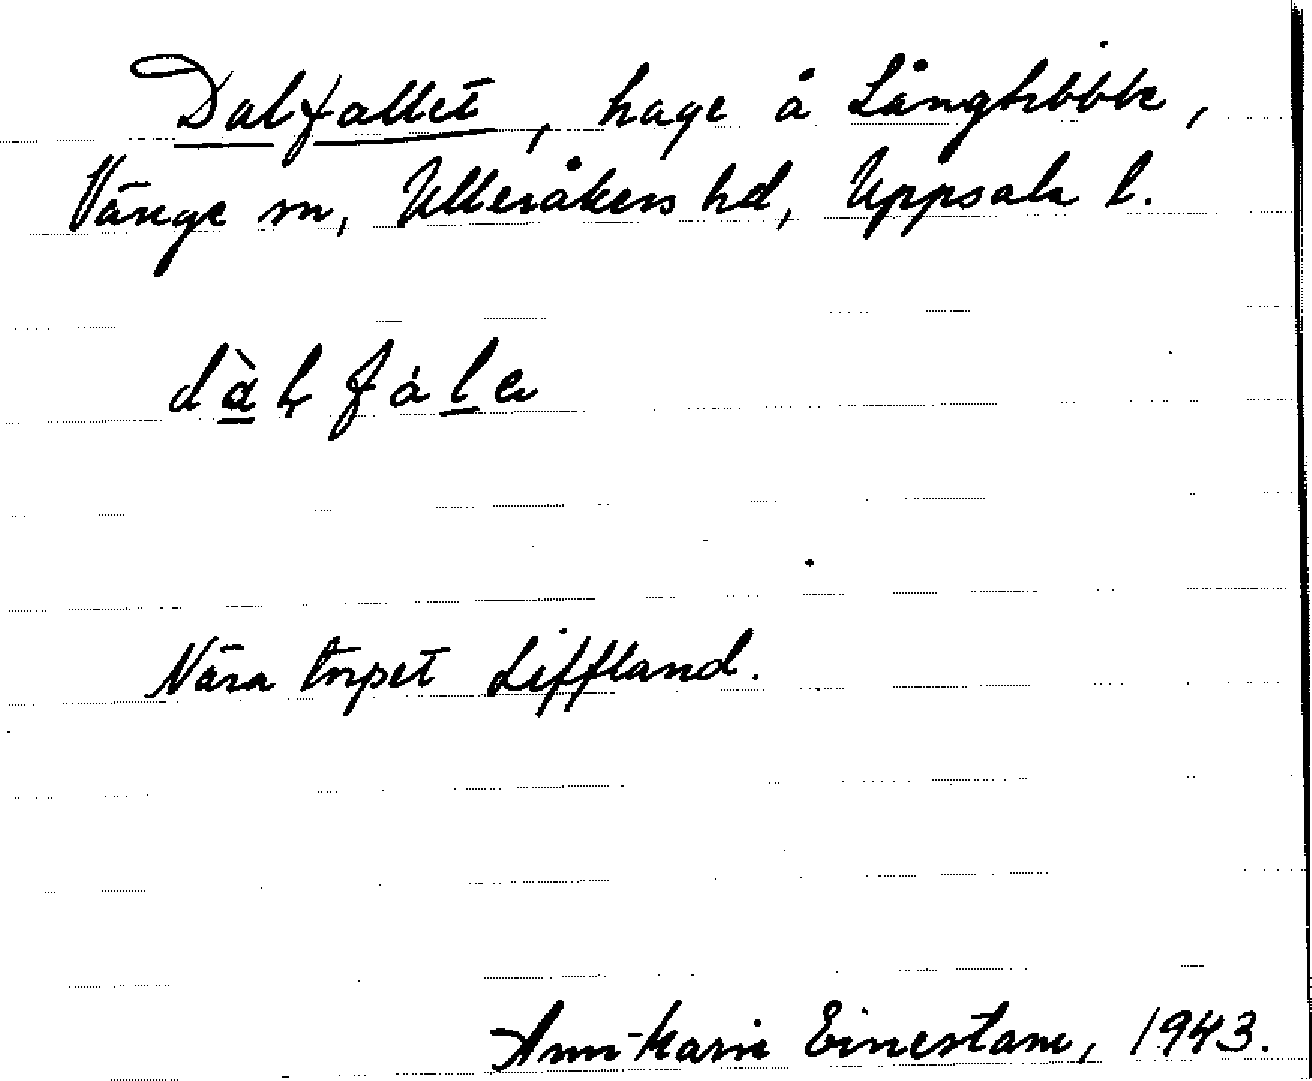 Dalfallet, hage å Långtibble,
Vänge sn, Ulleråkers hd, Uppsala l.
dàḷfála
Nära torpet Liffland.
Ann-Marie Einestam, 1943.